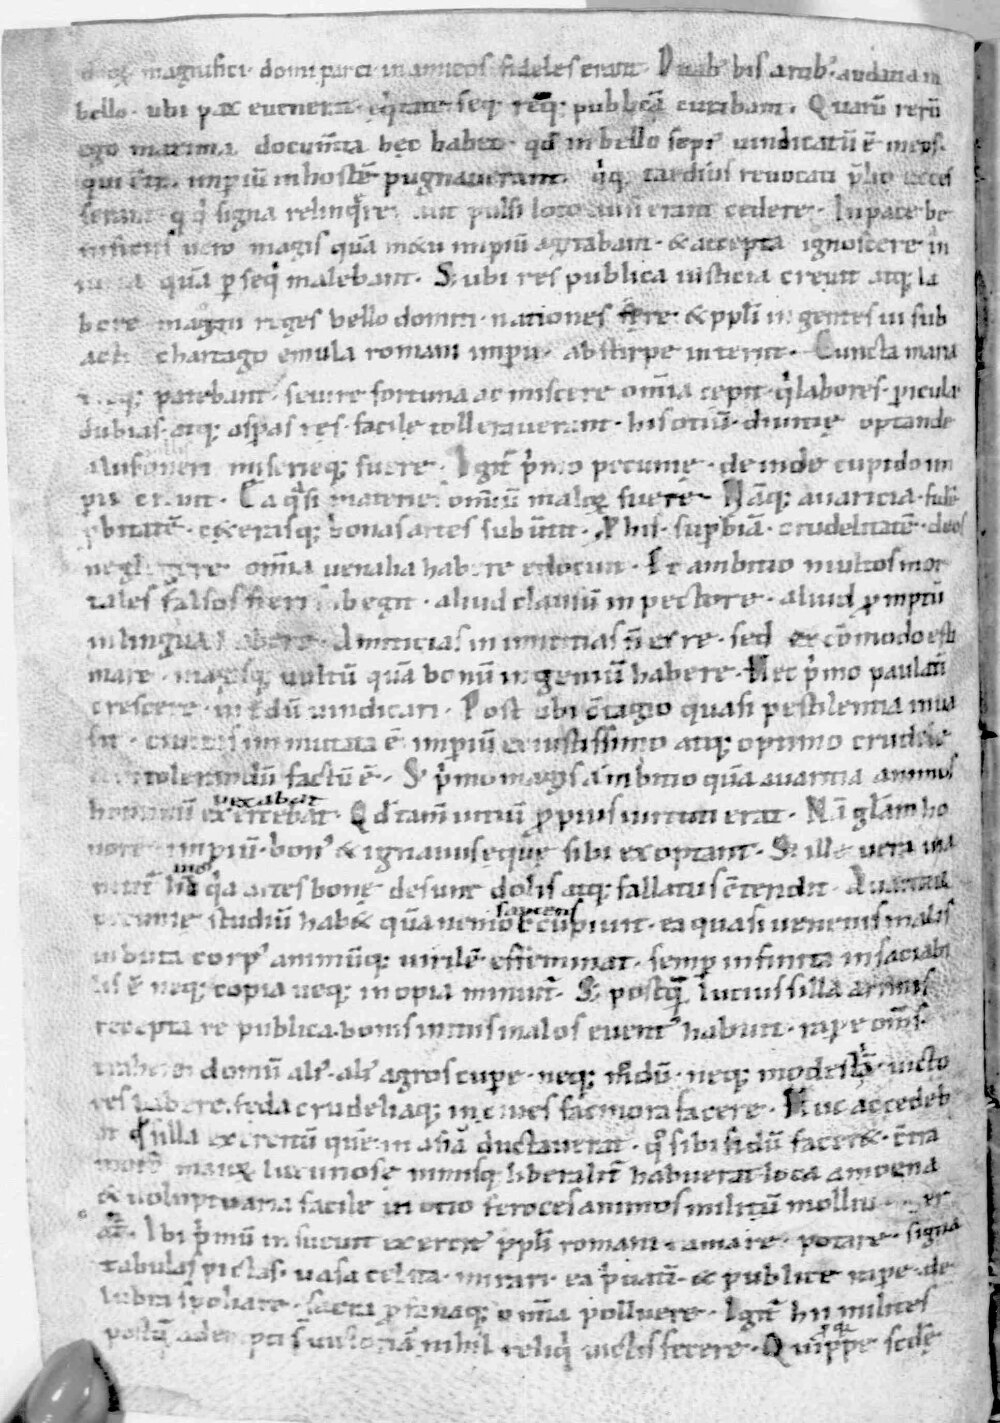 magnifici · domi parci · in amicos fideles erant · Duab᾽ his artib᾽ · audatia in
bello · ubi pax euenerat · eq̇tate · seq; remq; publicā curabant · Quarū rerū
ego maxima documta hec habeo · qđ in bello sepi᾽ uindicatū ē in eos ·
qui ct̄ · impiū in hostē pugnauerant · q̇q; tardius reuocati p̄lio exces
serant · q̄ q̇ signa relinq̇re aut pulsi loco ausi erant cedere · In pace be
neficiis uero magis quā metu impiū agitabant · & accepta ignoscere
quā p seq̇ malebant · S; ubi res publica iusticia creuit atq; la
bore magni reges bello domiti · nationes fere · & ppl̄i in gentes ui sub
acti chartago emula romani imp̄ii · ab stirpe interiit · Cuncta maria
patebant · seuire fortuna ac miscere om̄ia cepit · q̇ labores · picula
dubias · atq; asp̄as res · facile tollerauerant · his otiū · diuitię optande
aliis oneri miserieq; fuere · Igit̄ p̄mo pecunię · deinde cupido im
pii creuit · Ea q̄si materies om̄iū maloꝝ fuere · Nāq; auaricia · fidē
p̄bitatē · ceterasq; bonas artes subūtit · P his · sup̄biā · crudelitatē · deos
neglegere om̄ia uenalia habere edocuit · Et ambitio multos mor
tales falsos fieri subegit · aliud clausū in pectore · aliud p̄mptū
in lingua habere · Amicicias inimicitias n̄ ex re · sed ex cōmodo esti
mare · magisq; uultū quā bonū ingeniū habere · Hec p̄mo paulatī
crescere · intdū uindicari · Post ubi cōtagio quasi pestilentia inua
sit · ciuitas inmutata ē impiū ex iustissimo atq; optimo crudele
intolerandū factū ē · S; p̄mo magis ambitio quā auaritia animos
hominū exercebat · Qđ tam̄ uitiū p̄pius uirtuti erat · Nā glām ho
uexabat
nore impiū · bon᾽ & ignauus eque sibi exoptant · S; ille uera uia
nitit̄ huic q̇a artes bonę desunt dolis atq; fallatiis cōtendit · Auaritia
pecunie studiū hab& quā nemo cupiuit · ea quasi uenenis malis
sapiens
inbuta corp᾽ animūq; uirilē effeminat · semp infinita insaciabi
lis ē neq; copia neq; inopia minuit̄ · S; postq̄ Lucius silla armis
recepta re publica · bonis initiis malos euent᾽ habuit · rape om̄s ·
trahere domū ali᾽ · ali᾽ agros cupe · neq; m̄dū · neq; modestā · uicto
res habere · feda crudeliaq; in ciues facinora facere · Huc accedeb
at qđ silla exercitū quē in asiā ductauerat · q̊ sibi fidū faceret · c̄tra
morē maioꝝ luxuriose nimisq; liberalit̄ habuerat · loca amoena
& uoluptuaria facile in otio feroces animos militū molliu er
at · Ibi p̄mū insueuit exercit᾽ ppl̄i romani · amare · potare · signa
tabulas pictas · uasa celata · mirari · ea ṗuatī · & publice rape · de
lubra spoliare · sacra p̄fanaq; om̄ia polluere · Igit̄ hii milites
postq̄ adempti s̄ uictoriā nihil reliq̇ uictis fecere · Quippe secūdę